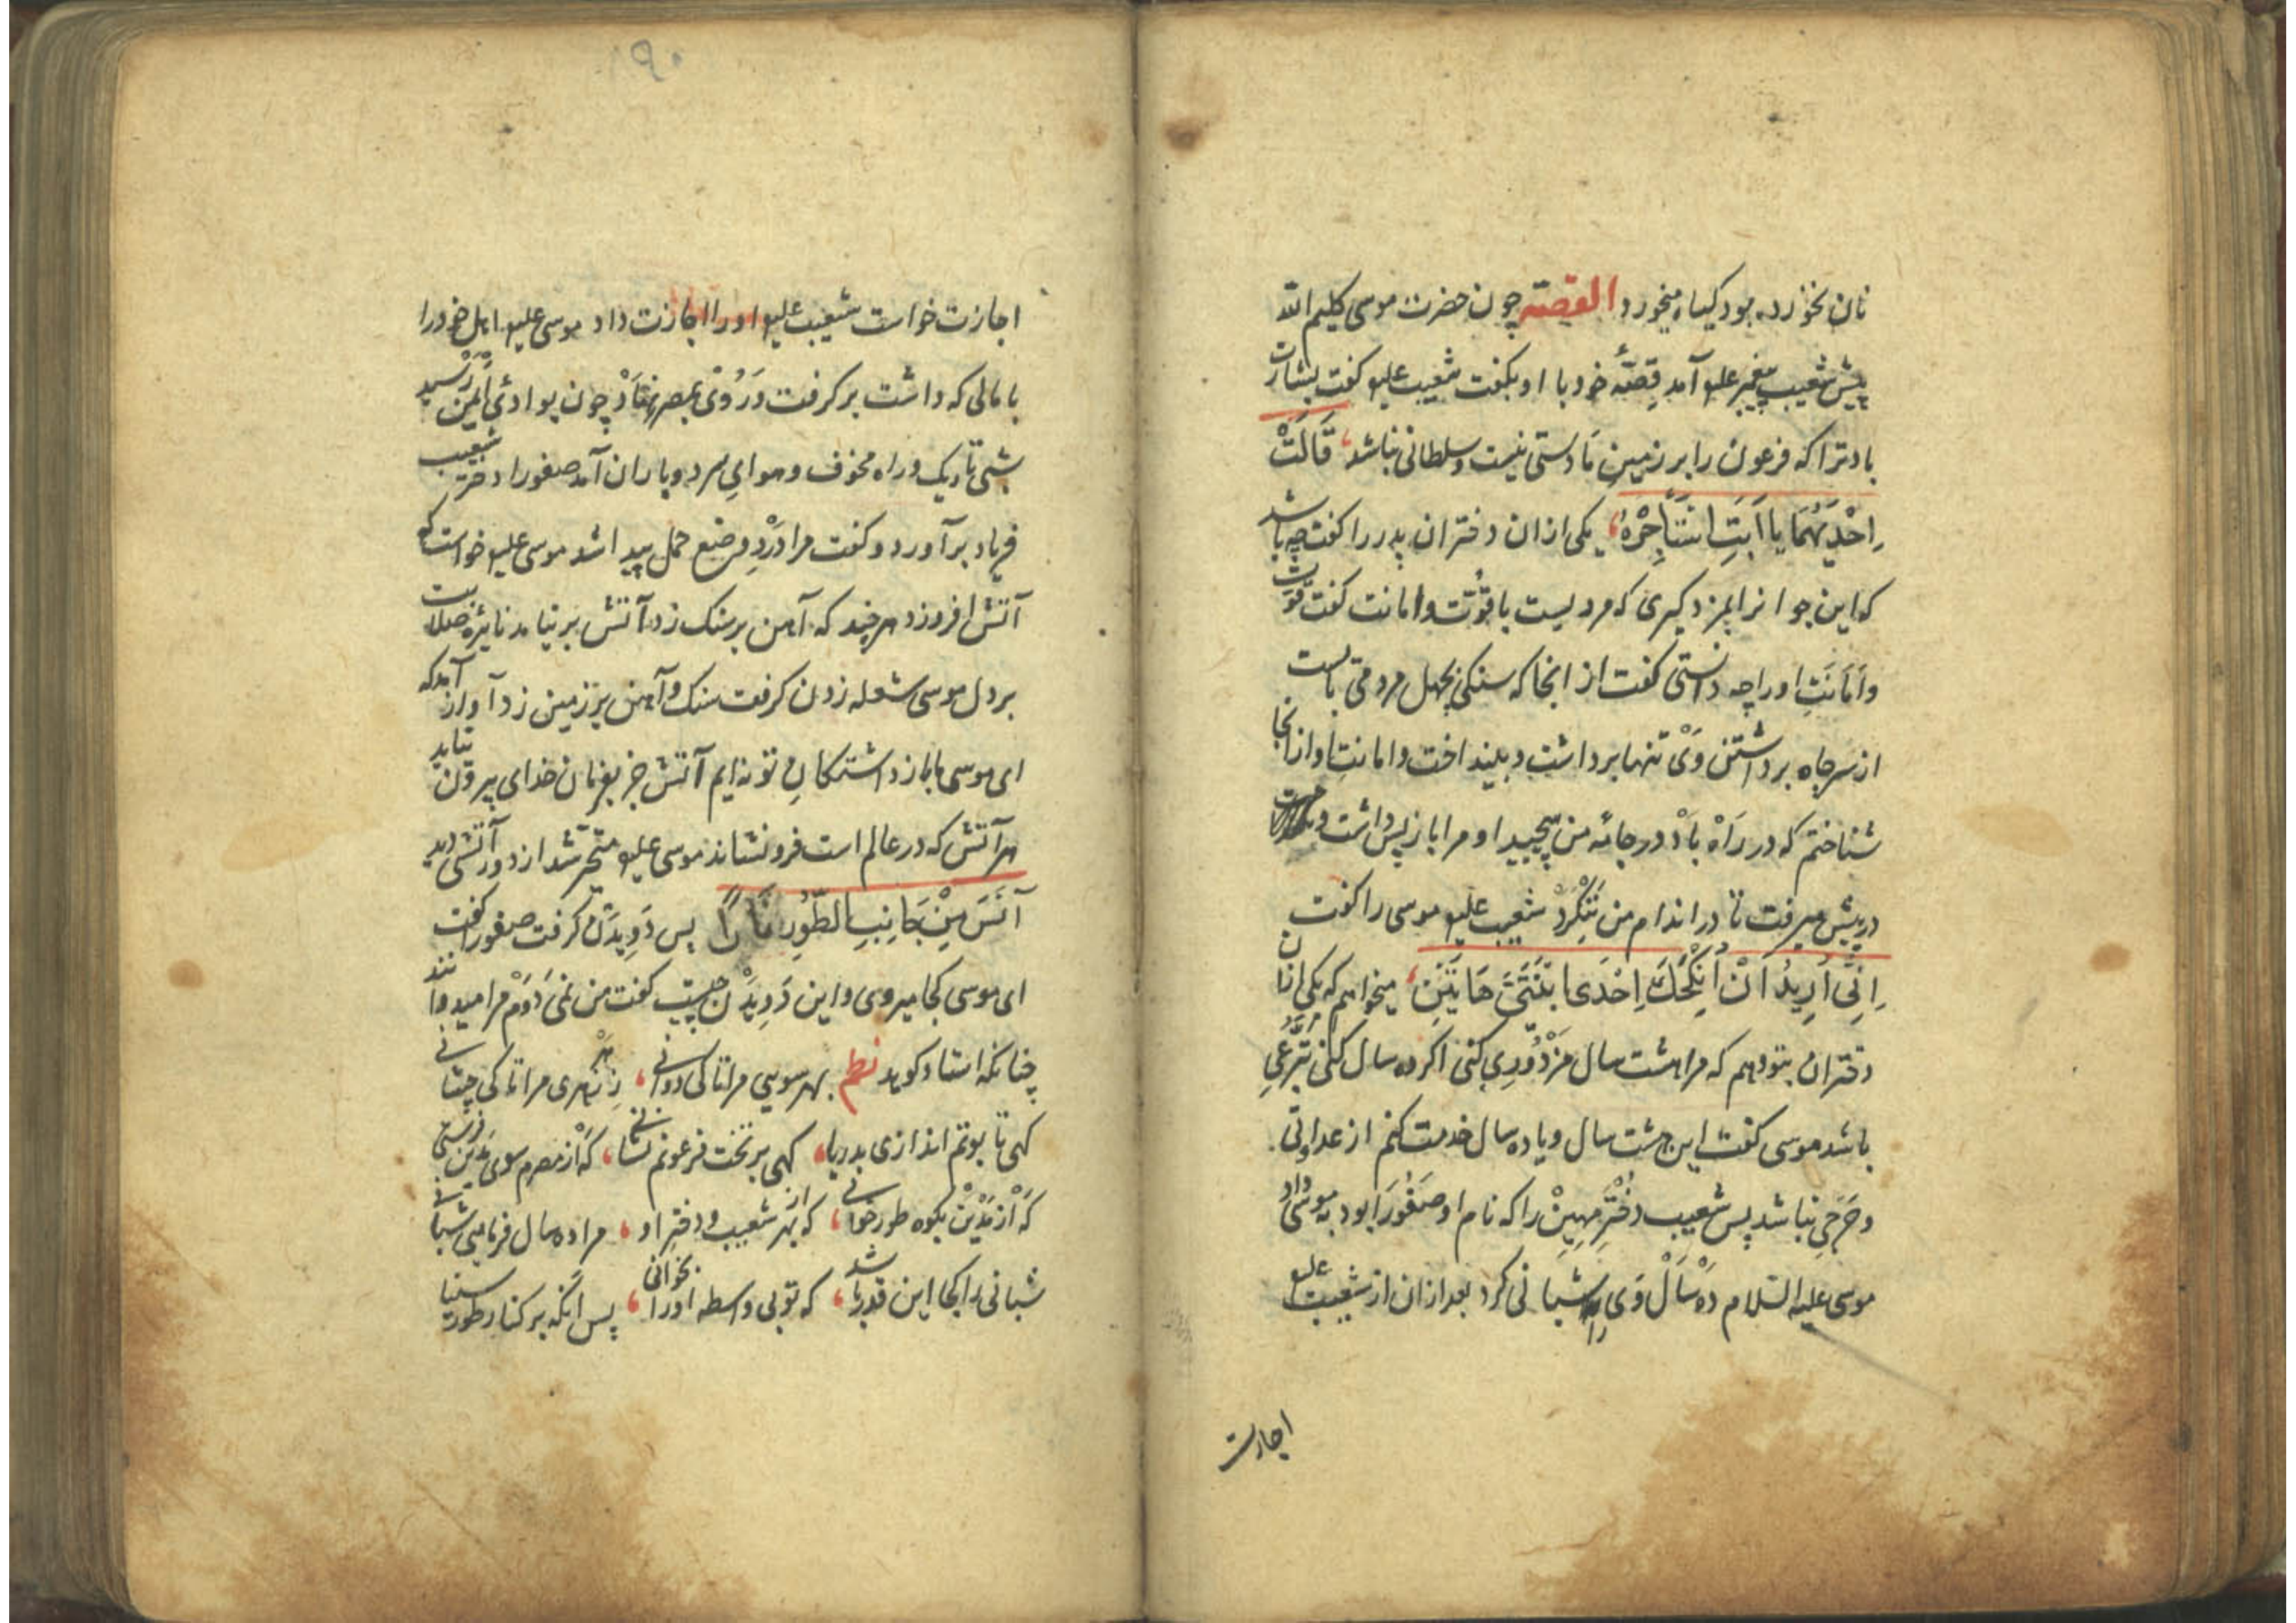 نان نخورده بود کیاه میخورد القصه چون حضرت موسی کلیم الله
پیش شعیب پیغمبر علیه آمد قِصّهٔ خود با او بکفت شعیب علیه کفت بشارت
بادترا که فرعون را بر زمینِ مَا دستی نیست و سلطانی نباشد، قَالَتْ
اِحْدَیهُمَا یا اَبَتِ اسْتَأجِرْهُ، یکی ازان دختران پدر را کفت چه باشد
که این جوانرا بمزد کیری که مردیست با قُوّت و امانت کفت قُوّت
و اَمَانَتِ او را چه دانستی کفت از انجا که سنکی بچهل مرد می بایست
از سر چاه برداشتن وَیْ تنها برداشت و بینداخت و امانتِ او از انجا
شناختم که در رَاهْ بَاْدْ در جامهٔ من پیچید او مرا باز پس داشت و
در پیش میرفت تا در اندام من نَنِکَرَدْ شعیب علیه موسی را کفت
اِنِّی اُرِیدُ اَنْ اُنْکِحَکَ اِحْدَی ابْنَتَیَّ هَاتَیْنِ، میخواهم که یکی ازان
دختران بتو دهم که مرا هشت سال مَزْدُوُرِی کنی اکر ده سال کنی تبرّعی
باشد موسی کفت این هشت سال و یا ده سال خدمت کنم از عداوتی
و حَرَجی نباشد پس شعیب دُخْتَرِ مِهِینْ را که نام او صَفُورَا بود به موسی داد
موسی علیه السّلام دَهْ سَالْ وَی را شبانی کرد بعد ازان از شعیب علیه
اجازت
۹۰
اجازت خواست شعیب علیه او را اجازت داد موسی علیه اهل خود را
با مالی که داشت برکرفت وَ رُوْیْ بمصر نهَاَدْ چون بوادیٔ اَیْمَنْ رَسید
شبی تاریک و راه مخوف و هوایِ سرد و باران آمد صفورا دختر شعیب
فریاد برآورد و کفت مرا دَرْدِ وضع حمل پیدا شد موسی علیه خواست که
آتش افروزد هرچند که آهن بر سنک زد آتش بر نیامد نایرهٔ ضلالت
بر دل موسی شعله زدن کرفت سنک و آهن بر زمین زد آواز آمد که
ای موسی ما باز داشتکانِ تو نه ایم آتش جز بفرمان خدای بیرون نیاید
هر آتش که در عالم است فرونشاند موسی علیه متحیّر شد از دور آتشی دید
آنَسَ مِنْ جَانِبِ الطُّوُرِ نَاراً پس دَوِیدَنْ کرفت صفورا کفت
ای موسی کجا میروی و این دَوِیدَنْ چیست کفت من نمی دَوَم مرا میدوانند
چنانکه استاد کوید نظم بهر سویی مرا تا کی دوانی، زِ هر زهری مرا تا کی چشانی
کهی تابوتم اندازی بدریا، کهی بر تخت فرعونم نشانی، کَه از مصرم سوی مَدْیَن فرستی
کَه اَزْ مَدْیَنْ بکوه طور خوانی، که از بهر شعیب و دختر او، مرا ده سال فرمایی شبانی
شبانی را کجا این قدر باشد، که تو بی واسطه او را بخوانی، پس آنکه بر کنار طور سینا